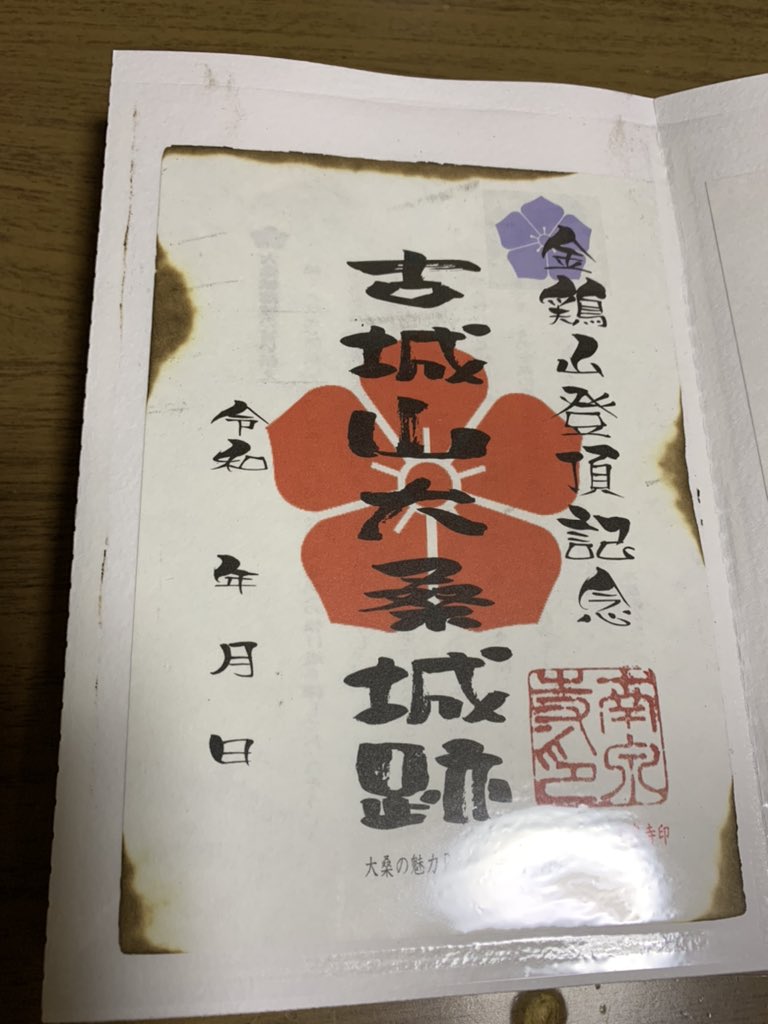 金鶏山登頂記念
古城山大桑城跡
令和 年 月 日
南泉寺印
寺印
大桑の魅力